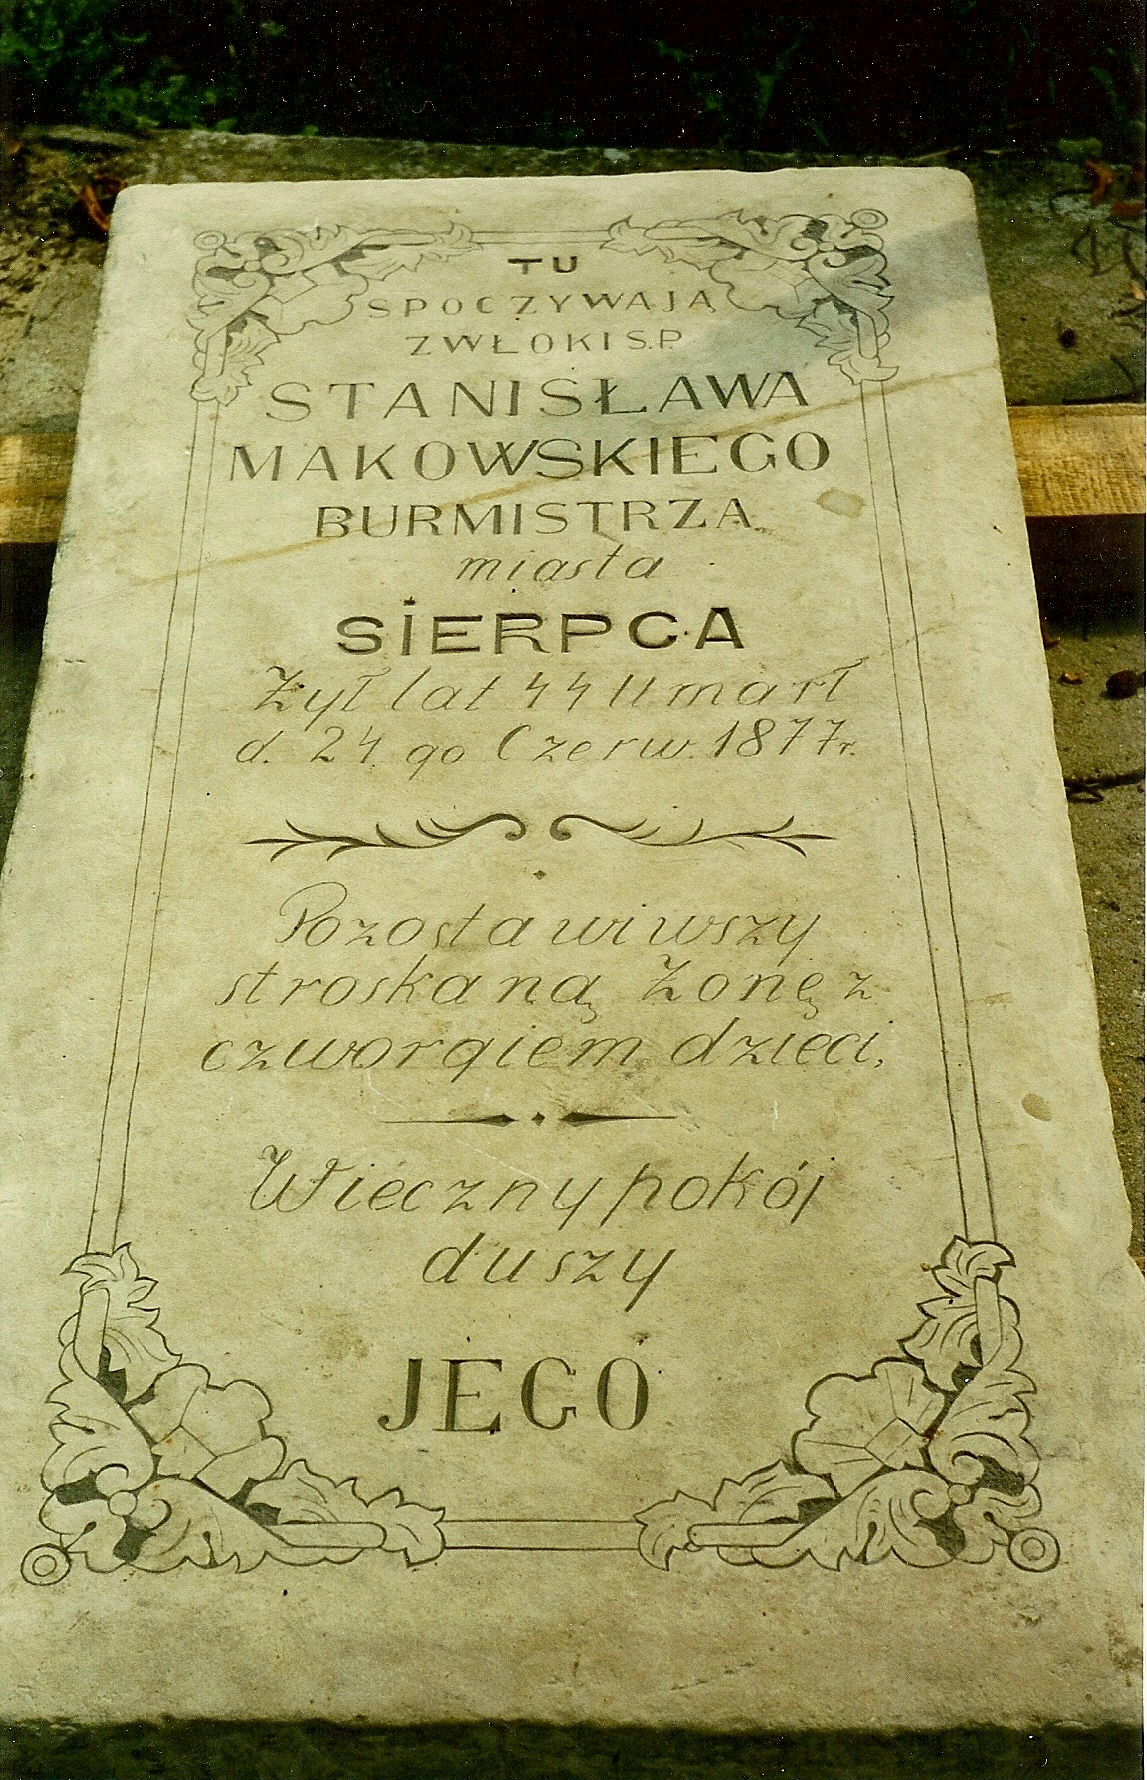 TU
SPOCZYWAJĄ
ZWŁOKI S.P.
STANISŁAWA
MAKOWSKIEGO
BURMISTRZA
miasta
SIERPCA
Żył lat 44 Umarł
d. 24. go Czerw. 1877 r.
Pozostawiwszy
stroskaną Żonę z
czworgiem dzieci,
Wieczny pokój
duszy
JEGO